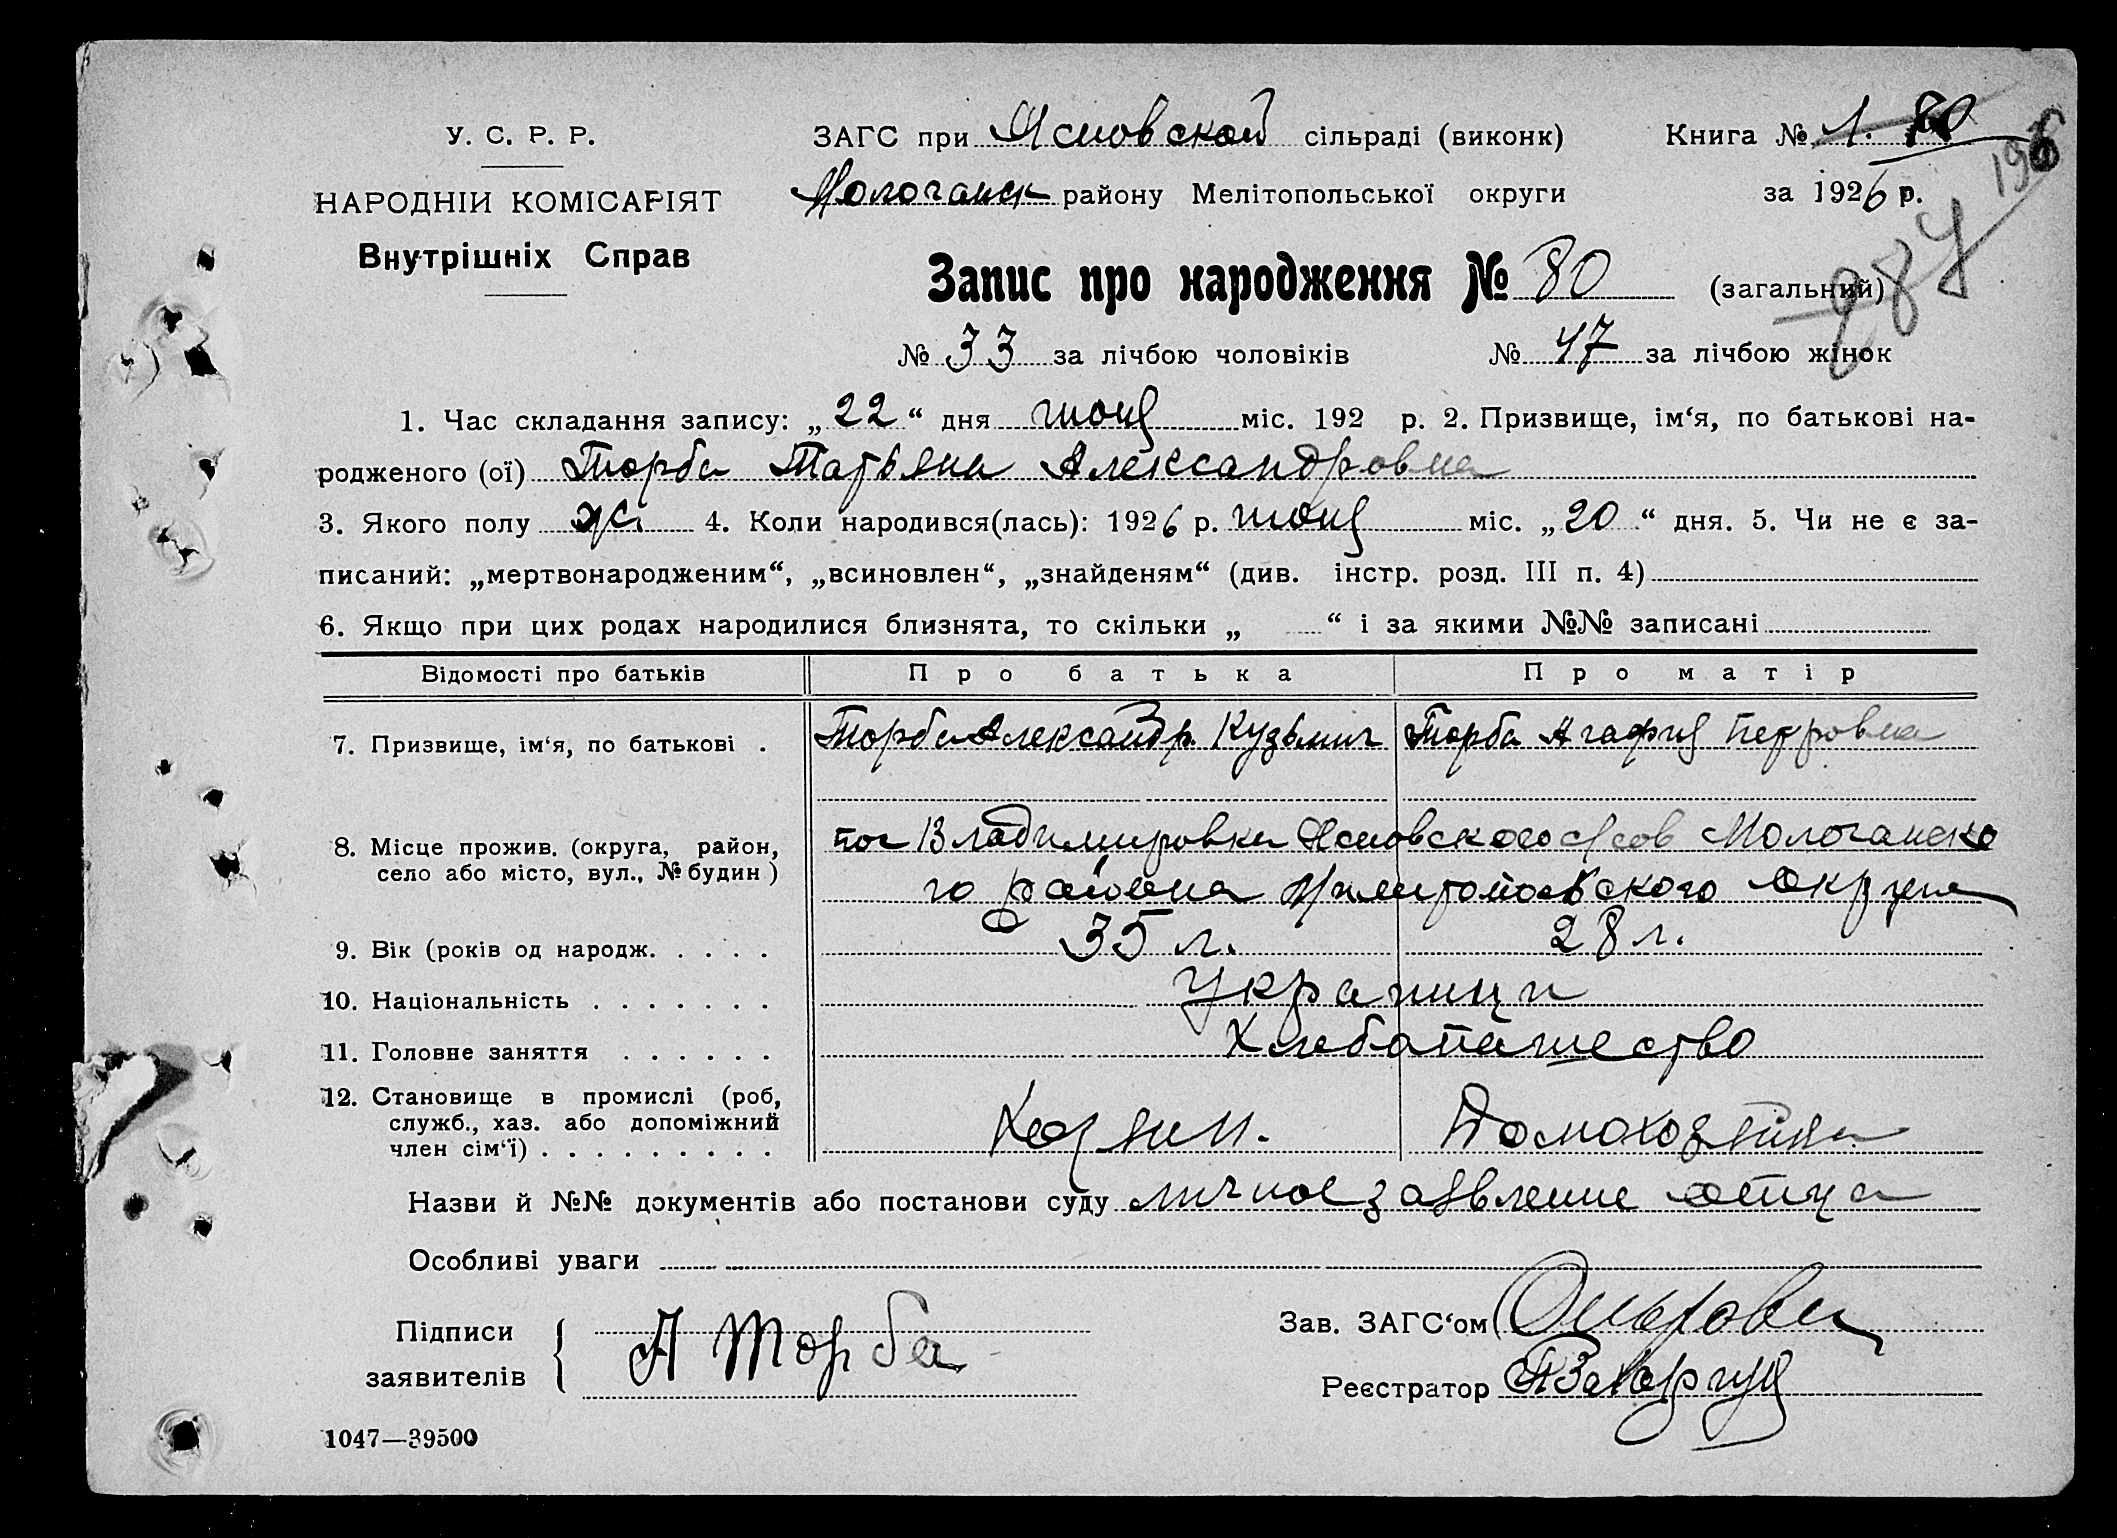 У. С. Р. Р.
НАРОДНІЙ КОМІСАРІЯТ
Внутрішніх Справ
ЗАГС при Ясновской сільраді (виконк)
Книга № 1. 80
Молочанск району Мелітопольської округи
за 1926 р.
Запис про народження № 80 (загальний)
287
№ 33 за лічбою чоловіків № 47 за лічбою жінок
1. Час складання запису: „22“ дня июня міс. 192 р. 2. Призвище, ім‘я, по батькові на-
родженого (ої) Торба Татьяна Александровна
3. Якого полу ж. 4. Коли народився(лась): 1926 р. июня міс. „20“ дня. 5. Чи не є за-
писаний: „мертвонародженим“, „всиновлен“, „знайденям“ (див. інстр. розд. III п. 4)
6. Якщо при цих родах народилися близнята, то скільки „ “ і за якими №№ записані
Відомості про батьків Про батька Про матір
7. Призвище, ім‘я, по батькові . Торба Александр Кузьмич Торба Агафия Петровна
8. Місце прожив. (округа, район, село або місто, вул., № будин) пос Владимировки Ясновского с/сов Молочанско
го района Мелитопольского округа
9. Вік (років од народж. . . . . 35 л. 28 л.
10. Національність . . . . . . . Украинци
11. Головне заняття . . . . . . Хлебопашество
12. Становище в промислі (роб,
служб., хаз. або допоміжний
член сім‘ї) . . . . . . . . . Хозяин. Домохозяйка
Назви й №№ документів або постанови суду личное заявление отца
Особливі уваги
Підписи
заявителів
А Торба
Зав. ЗАГС‘ом
Реєстратор
1047—39500